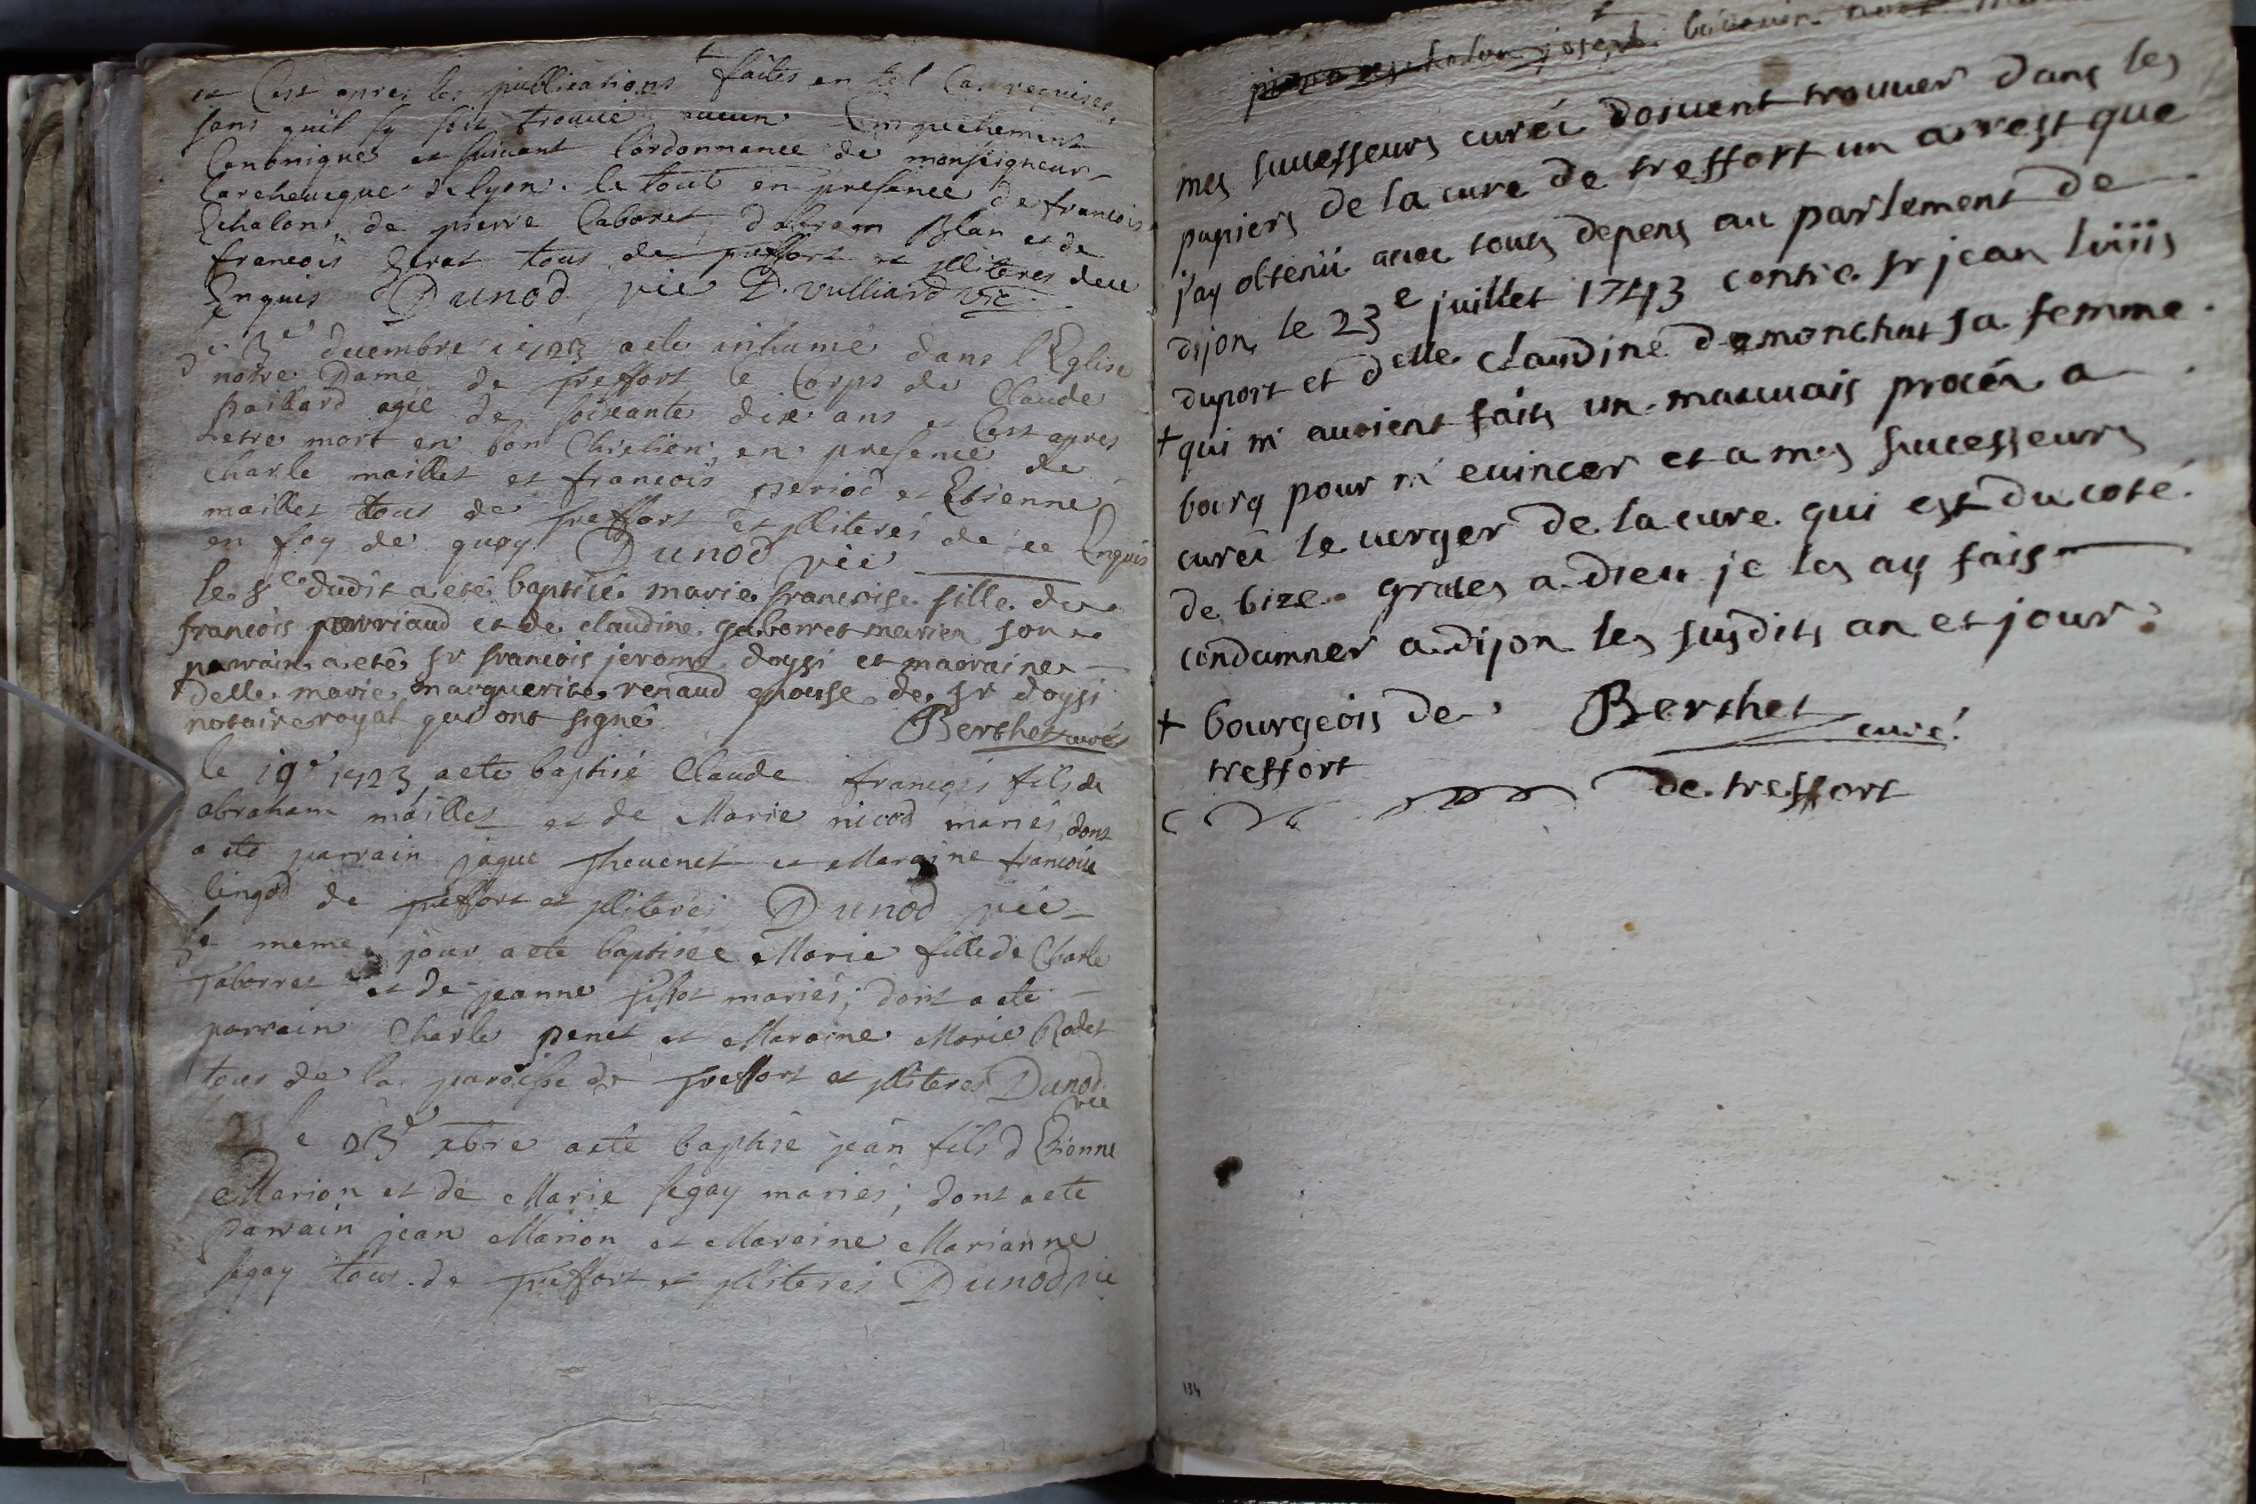 et C'est apres les publications faites en tel Cas requises,
sans quil sy soit trouvé aucun Empechement
Canonique et suivant l'ordonnance de monseigneur
l'archeveque de lyon. le tout en presence de francois
Echalon, de pierre Caboret, d'abram Blan et de
francois tous de treffort et illiteres de ce
Enquis Dunod vic D. vulliard vic
Le 3e decembre 1723 a ete inhumé dans l'Eglise
notre Dame de treffort le Corps de Claude
paillard agé de soixante dix ans et C'est apres
etre mort en bon Chretien, en presence de
Charle maillet et francois period et Etienne
maillet tous de treffort et illiterés de ce Enquis
en foy de quoy Dunod vic
le 8e dudit a eté baptisé marie francoise fille de
francois perriaud et de claudine gaborret mariez son
parrain a eté sr francois jerome doysi et marraine
delle marie marguerite renaud epouse de sr doysi
notaire royal qui ont signé Berthet curé
le 19e 1723 a ete baptisé Claude françois fils de
abraham maillet et de Marie nicod mariés, dont
a ete parrain jaque thevenet et Maraine francoise
lingod de treffort et illiterés Dunod vic
Le meme jour a ete baptisée Marie fille de Charle
gaborret et de jeanne pissot mariés; dont a ete
parrain Charle penet et Maraine Marie Rodet
tous de la paroisse de treffort et illiteres Dunod
vic
Le 23e xbre a ete baptisé jean fils d'Etienne
Marion et de Marie segay mariés; dont a ete
parrain jean Marion et Maraine Marianne
segay tous de treffort et illiterés Dunod vic
pierre echalon joseph
mes successeurs curéz doivent trouver dans les
papiers de la cure de treffort un arrest que
j'ay obtenü avec touts depens au parlement de
dijon le 23e juillet 1743 contre sr jean loüis
duport et delle claudine demonchat sa femme
+ qui m'avoient faits un mauvais procéz a
bourg pour m'evincer et a mes successeurs
curéz le verger de la cure qui est du coté
de bize. graces a dieu je les ay fais
condamner a dijon les susdits an et jour
+ bourgeois de Berthet curé
treffort de treffort
134